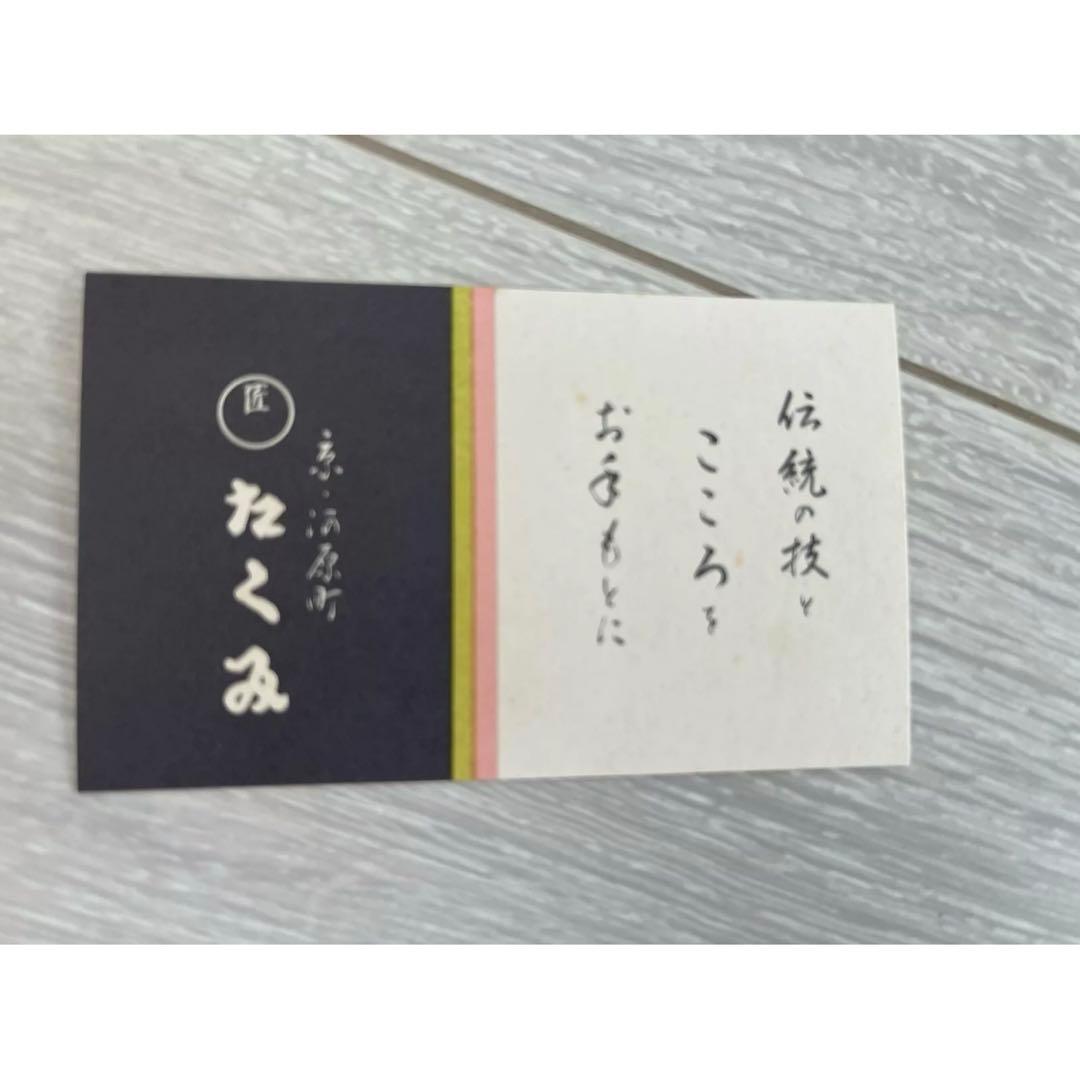 伝統の技と
こころを
お手もとに
京・河原町
匠
たくみ